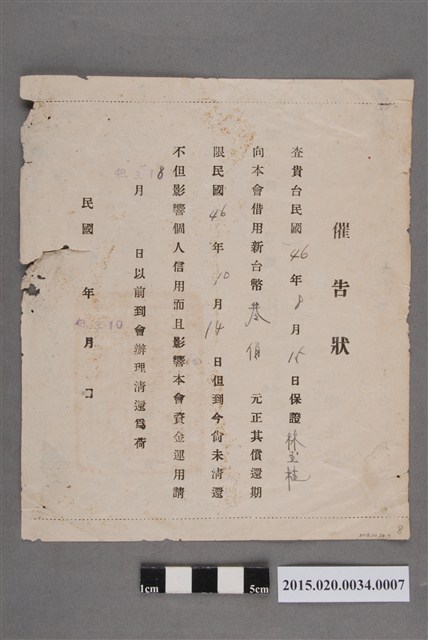 催告狀
查貴台民國46年8月15日保證林玉桂
向本會借用新台幣 元正其償還期
限民國46年10月14日但到今尙未清還
不但影響個人信用而且影響本會資金運用請
月 日以前到會辦理清還爲荷
民國 年 月 日
8
1cm
5cm
2015.020.0034.0007